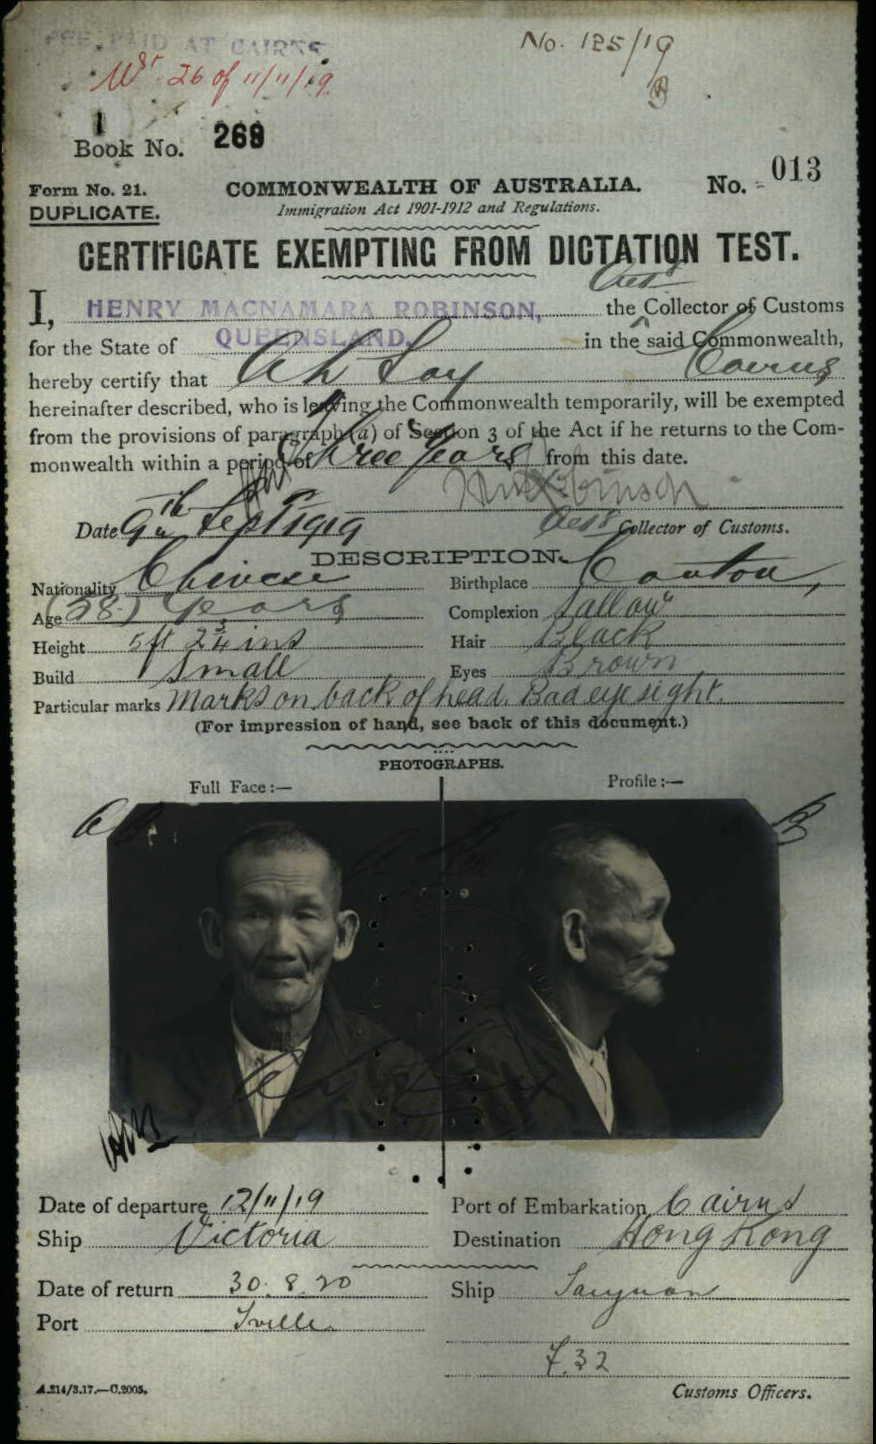 FEE PAID AT CAIRNS
No. 125/19
26 of 11/11/19.
1
Book No. 268
Form No. 21.
COMMONWEALTH OF AUSTRALIA.
No. 013
DUPLICATE.
Immigration Act 1901-1912 and Regulations.
CERTIFICATE EXEMPTING FROM DICTATION TEST.
Asst
I, HENRY MACNAMARA ROBINSON, the Collector of Customs
for the State of QUEENSLAND. in the said Commonwealth,
hereby certify that Ah Loy Cairns
hereinafter described, who is leaving the Commonwealth temporarily, will be exempted
from the provisions of paragraph (a) of Section 3 of the Act if he returns to the Com-
monwealth within a period of Three years from this date.
HM Robinson
Date 9th Sept 1919 Asst Collector of Customs.
DESCRIPTION.
Nationality Chinese Birthplace Canton,
Age (58) years Complexion Sallow
Height 5ft 2¾ ins Hair Black
Build Small Eyes Brown
Particular marks Marks on back of head. Bad eye sight.
(For impression of hand, see back of this document.)
PHOTOGRAPHS.
Full Face:— Profile:—
Date of departure 12/11/19 Port of Embarkation Cairns
Ship Victoria Destination Hong Kong
Date of return 30.8.20 Ship Taiyuan
Port Tville
F.32
A.214/3.17.—C.2005. Customs Officers.